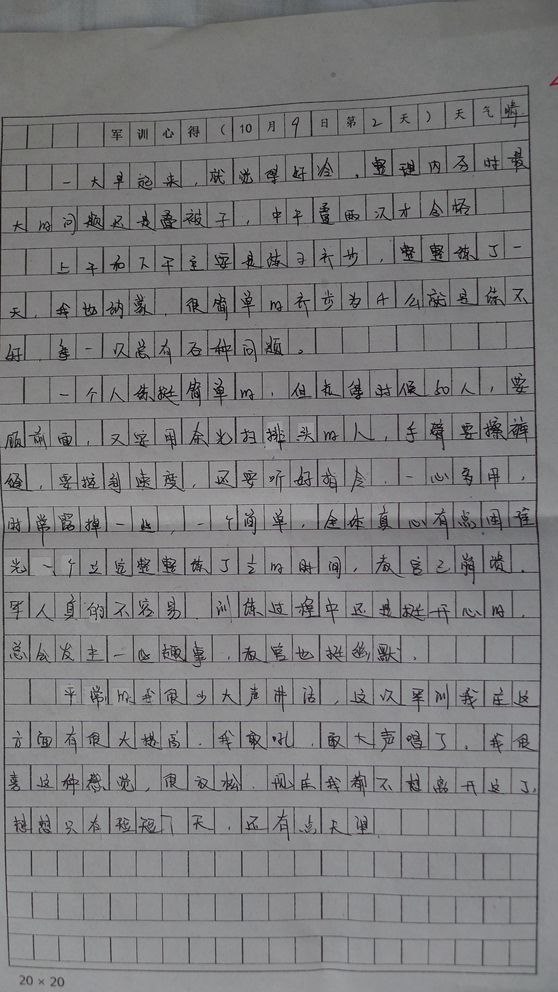 军训心得(10月9日第2天)天气晴
一大早起来,就觉得好冷。整理内务时最
大的问题还是叠被子,中午叠两次才合格
上午和下午主要是练了齐步,整整练了一
天,我也纳萧,很简单的齐步为什么就是练不
好,每一次总有各种问题。
一个人练挺简单的,但我得时候50人,要
顾前面,又要用余光扫排头的人,手臂要擦裤
缝,要控制速度,还要听好指令,一心多用,
时常露掉一些,一个简单,全体真心有点困难
光一个立定整整练了的时间,教官已崩溃。
军人真的不容易,训练过程中还是挺开心的,
总会发生一些趣事,教官也挺幽默。
平常的我很少大声讲话,这次军训我在这
方面有很大提高,我敢吼,敢大声唱了。我很
喜这种感觉,很放松,现在我都不想离开这了,
想想只有短短7天,还有点天
20×20